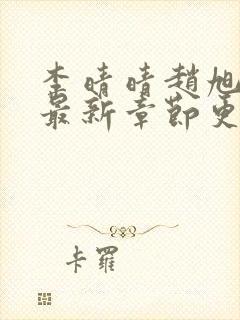 李晴晴趙旭
最新章節更
卡羅